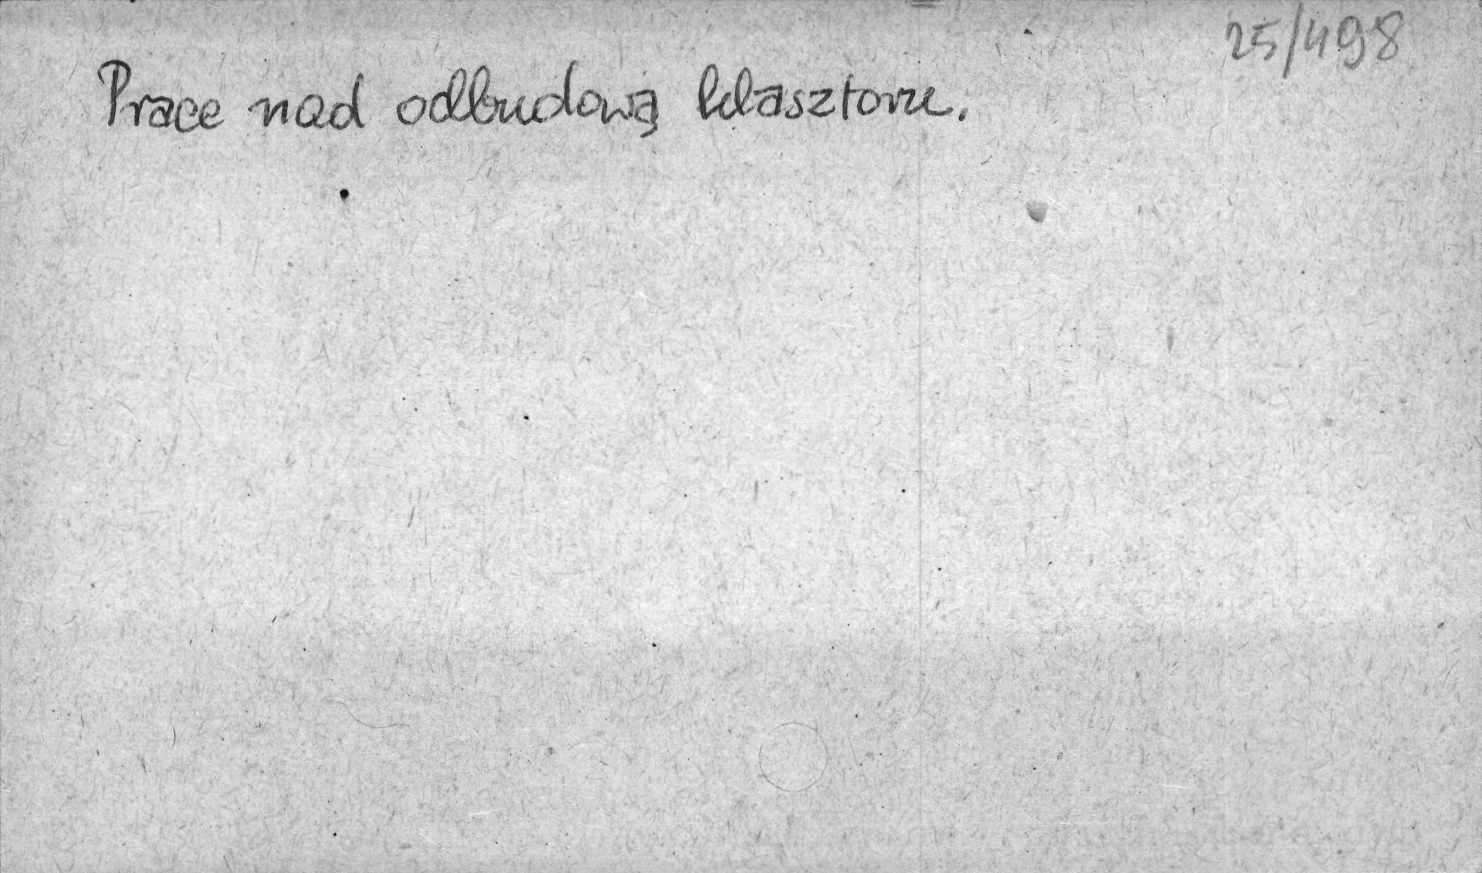 25/498
Prace nad odbudową klasztoru.